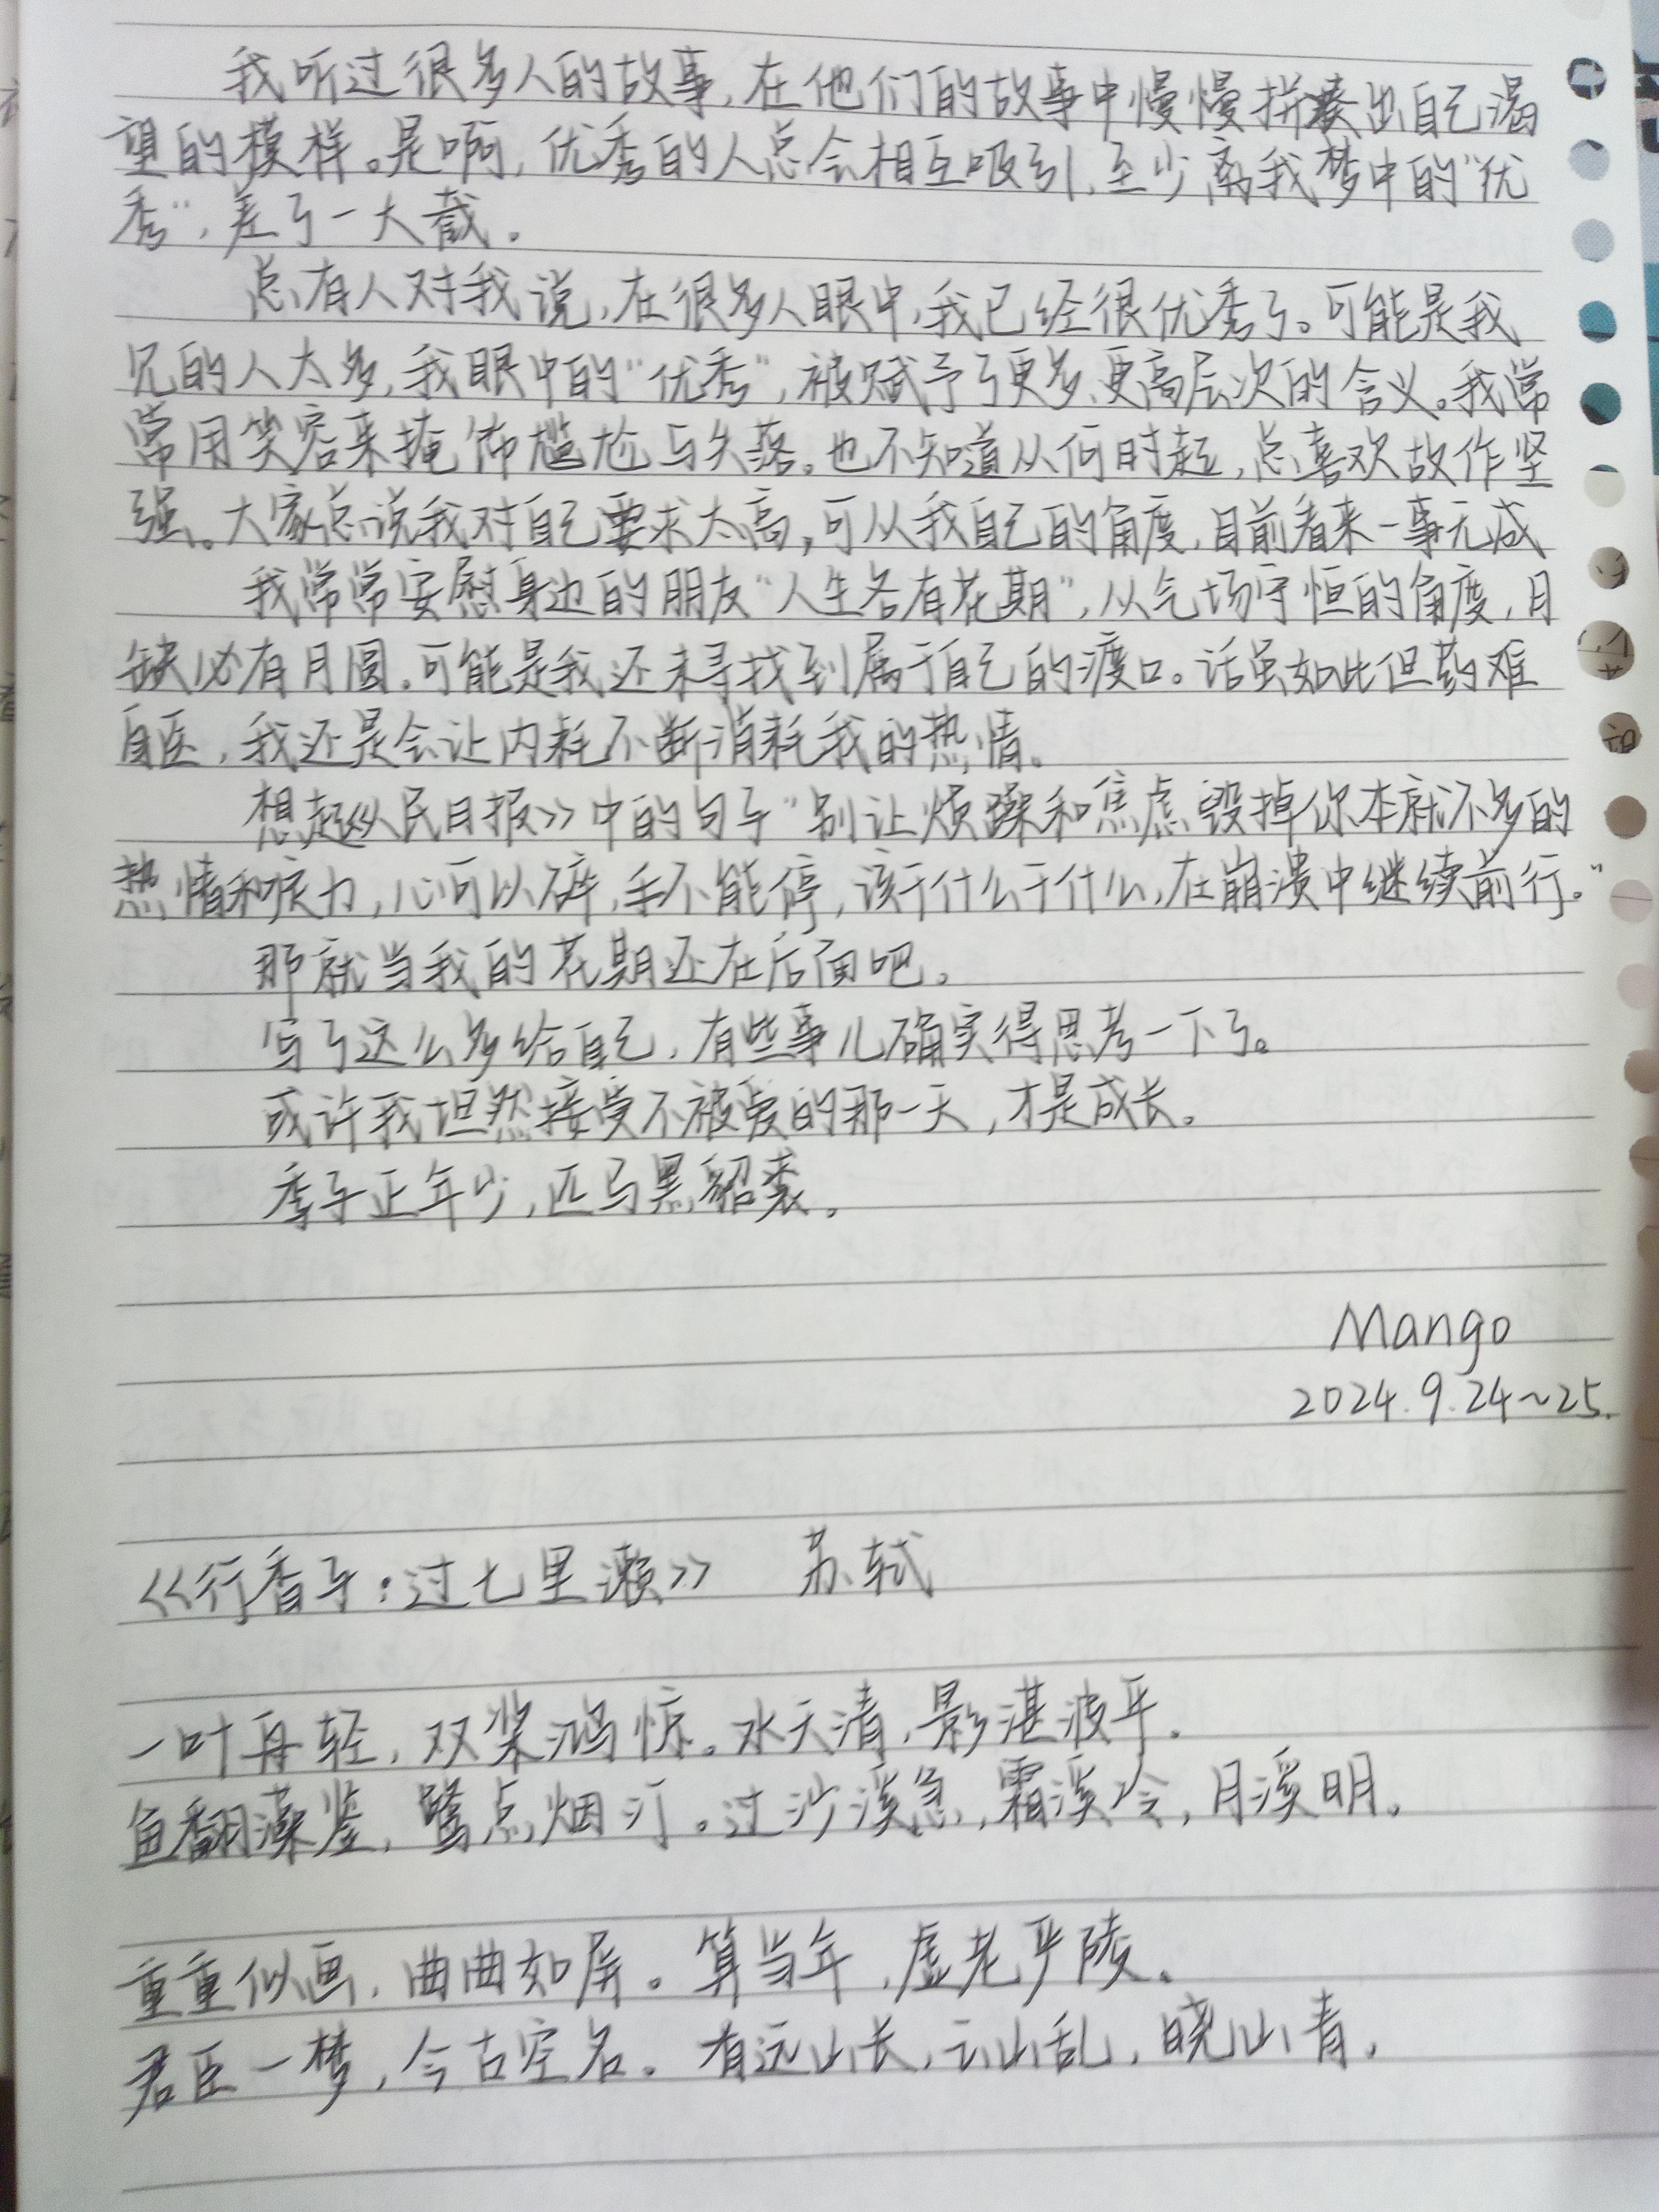 我听过很多人的故事，在他们的故事中慢慢拼凑出自己渴
望的模样。是啊，优秀的人总会相互吸引，至少离我梦中的“优
秀”，差了一大截。
总有人对我说，在很多人眼中，我已经很优秀了。可能是我
见的人太多，我眼中的“优秀”，被赋予了更多、更高层次的含义。我常
常用笑容来掩饰尴尬与失落。也不知道从何时起，总喜欢故作坚
强。大家总说我对自己要求太高，可从我自己的角度，目前看来一事无成
我常常安慰身边的朋友“人生各有花期”，从气场守恒的角度，月
缺必有月圆。可能是我还未寻找到属于自己的渡口。话虽如此但药难
自医，我还是会让内耗不断消耗我的热情。
想起《人民日报》中的句子“别让烦躁和焦虑毁掉你本就不多的
热情和定力，心可以碎，手不能停，该干什么干什么，在崩溃中继续前行。”
那就当我的花期还在后面吧。
写了这么多给自己，有些事儿确实得思考一下了。
或许我坦然接受不被爱的那一天，才是成长。
季子正年少，匹马黑貂裘。
Mango
2024.9.24~25.
《行香子：过七里濑》 苏轼
一叶舟轻，双桨鸿惊。水天清，影湛波平。
鱼翻藻鉴，鹭点烟汀。过沙溪急，霜溪冷，月溪明。
重重似画，曲曲如屏。算当年，虚老严陵。
君臣一梦，今古空名。有远山长，云山乱，晓山青。